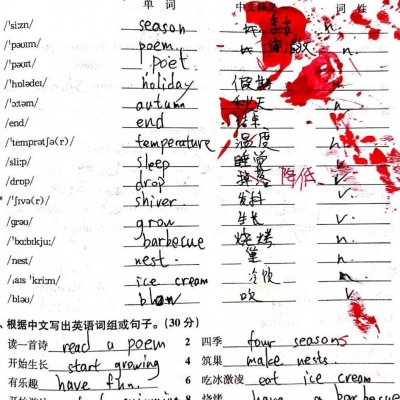 单 词 中文释义 词 性
/ˈsiːzn/ season n.
/ˈpəʊɪm/ poem n.
/ˈpəʊɪt/ poet
/ˈhɒlədeɪ/ holiday 假期
/ˈɔːtəm/ autumn 秋天 n
/end/ end 结束
/ˈtemprətʃə(r)/ temperature 温度 n
/sliːp/ sleep 睡觉
/drɒp/ drop 降低 v
/ˈʃɪvə(r)/ shiver 发抖 v
/ɡrəʊ/ grow 生长 v
/ˈbɑːbɪkjuː/ barbecue 烧烤 n.
/nest/ nest 巢 n
/ˌaɪs ˈkriːm/ ice cream 冷饮 n.
/bləʊ/ blow 吹 v
、根据中文写出英语词组或句子。(30 分)
读一首诗 read a poem 2 四季 four seasons
开始生长 start growing 4 筑巢 make nests.
有乐趣 have fun. 6 吃冰激凌 eat ice cream
8 烧烤 have a barbecue